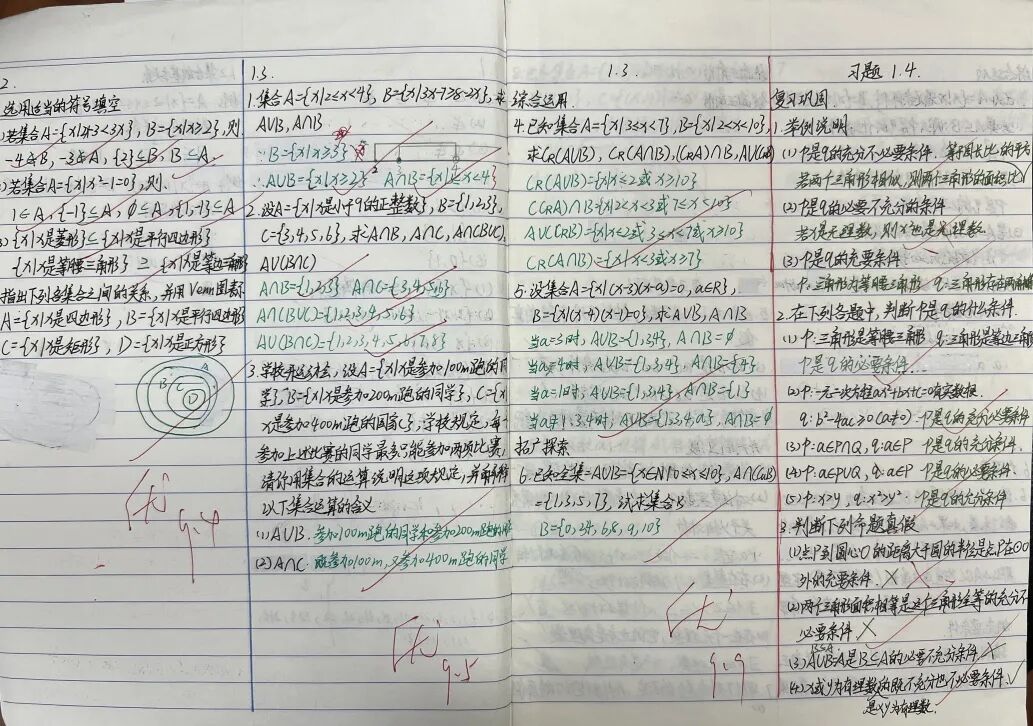 2.
选用适当的符号填空
-4∉B, -3∉A, {2}⊆B, B⊆A
)若集合A={x|x²-1=0},则.
1∈A, {-1}⊆A, ∅⊆A, {1,-1}⊆A
{x|x是菱形}⊆{x|x是平行四边形}
{x|x是等腰三角形} ⊇ {x|x是等边三角形
指出下列各集合之间的关系,并用Venn图表示
A={x|x是四边形}, B={x|x是平行四边形
C={x|x是矩形}, D={x|x是正方形}
A
B C D
优
9.4
1.3
1.集合A={x|2≤x<4}, B={x|3x-7≥8-2x}, 求
A∪B, A∩B
∴B={x|x≥3}
∴A∪B={x|x≥2} A∩B={x|3≤x<4}
2.设A={x|x是小于9的正整数}, B={1,2,3},
C={3,4,5,6}, 求A∩B, A∩C, A∩(B∪C),
A∪(B∩C)
A∩B={1,2,3}, A∩C={3,4,5,6}
A∩(B∪C)={1,2,3,4,5,6}
A∪(B∩C)={1,2,3,4,5,6,7,8}
3.学校开运动会,设A={x|x是参加100m跑的同
学}, B={x|x是参加200m跑的同学}, C={x|
x是参加400m跑的同学},学校规定,每个
参加上述比赛的同学最多只能参加两项比赛,
请你用集合的运算说明这项规定,并解释
以下集合运算的含义
(1)A∪B. 参加100m跑的同学和参加200m跑的同
(2)A∩C. 既参加100m,又参加400m跑的同学
优
9.5
1.3.
综合运用
4.已知集合A={x|3≤x<7}, B={x|2<x<10},
求CR(A∪B), CR(A∩B), (CRA)∩B, A∪(CRB)
CR(A∪B)={x|x≤2或x≥10}
(CRA)∩B={x|2<x<3或7≤x<10}
A∪(CRB)={x|x≤2或3≤x<7或x≥10}
CR(A∩B)={x|x<3或x≥7}
5.设集合A={x|(x-3)(x-a)=0, a∈R},
B={x|(x-4)(x-1)=0}, 求A∪B, A∩B
当a=3时, A∪B={1,3,4}, A∩B=∅
当a=4时, A∪B={1,3,4}, A∩B={4}
当a=1时, A∪B={1,3,4}, A∩B={1}
当a≠1,3,4时, A∪B={1,3,4,a}, A∩B=∅
拓广探索
6.已知全集=A∪B={x∈N|0≤x≤10}, A∩(CuB)
={1,3,5,7}, 试求集合B
B={0,2,4,6,8,9,10}
优
9.9
习题 1.4.
复习巩固
1.举例说明
(1)p是q的充分不必要条件. 等于周长比的平方
若两个三角形相似,则两个三角形的面积比
(2)p是q的必要不充分的条件
(3)p是q的充要条件
p:三角形为等腰三角形 q:三角形存在两角相等
2.在下列各题中,判断p是q的什么条件.
(1)p:三角形是等腰三角形 q:三角形是等边三角形
p是q的必要条件
(2)p:一元二次方程ax²+bx+c=0有实数根.
q:b²-4ac≥0(a≠0) p是q的充分必要条件
(3)p:a∈P∩Q, q:a∈P p是q的充分条件.
(4)p:a∈P∪Q, q:a∈P p是q的必要条件.
(5)p:x>y, q:x²>y². p是q的充分条件
3.判断下列命题真假
(1)点P到圆心O的距离大于圆的半径是点P在⊙O
外的充要条件. ×
(2)两个三角形面积相等是这个三角形全等的充分不
必要条件. ×
B⊆A
(3)A∪B=A是B⊆A的必要不充分条件. ×
(4)x或y为有理数的既不充分也不必要条件. √
是xy为有理数.